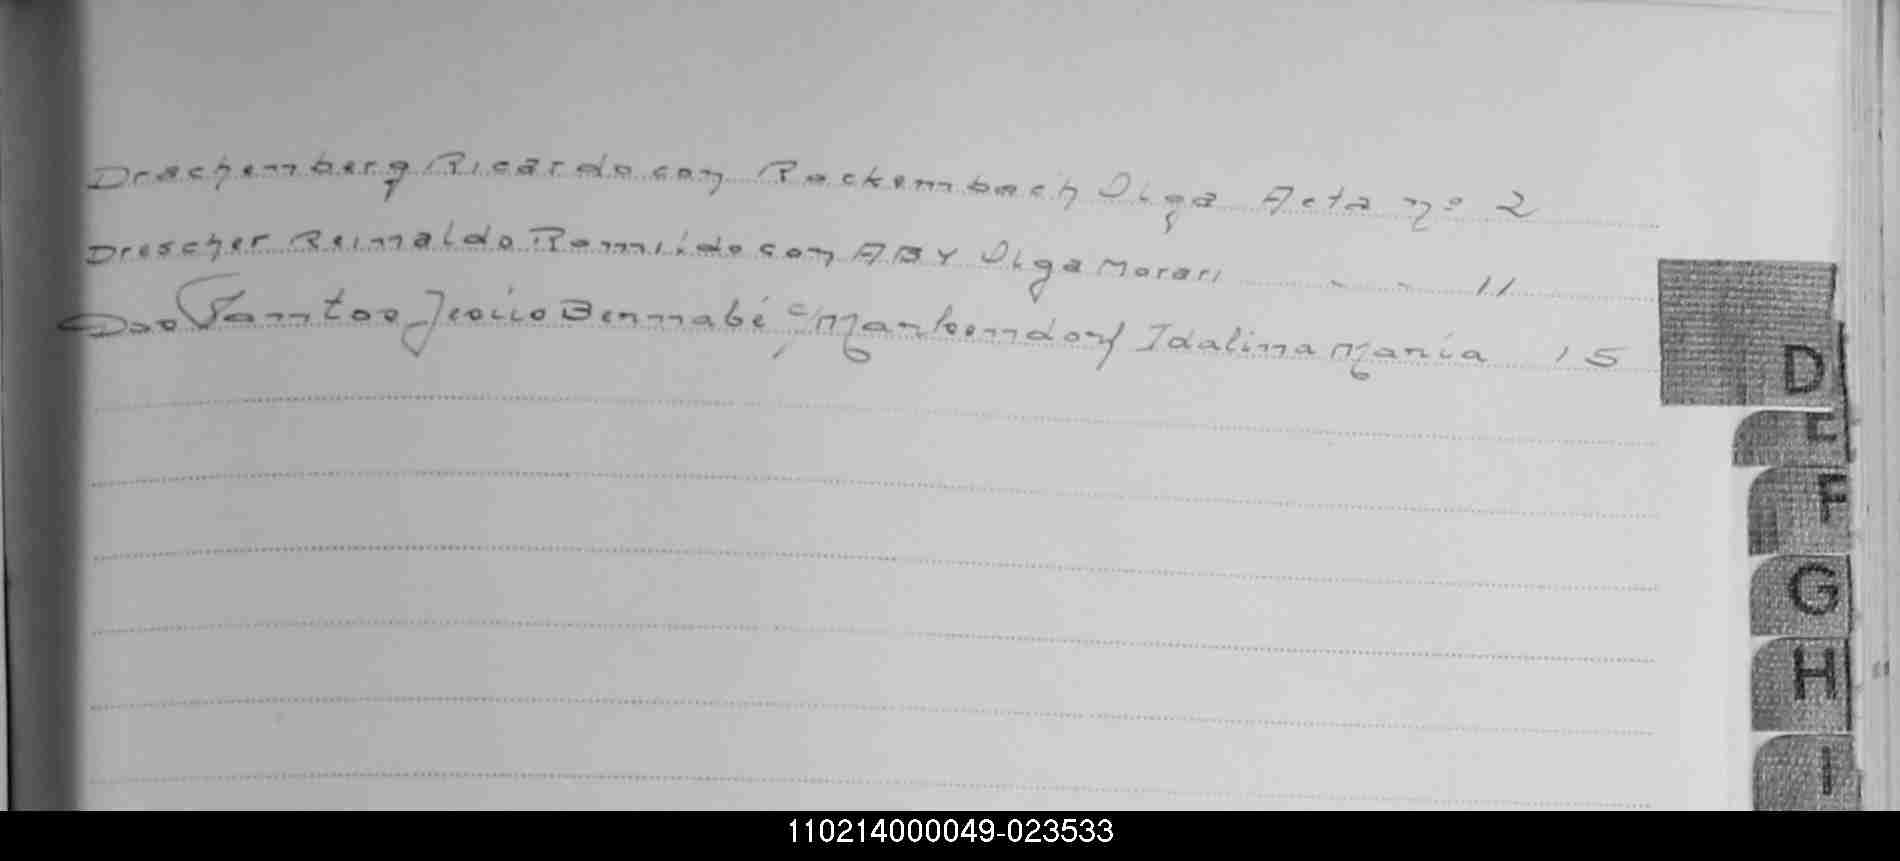 Drachemberg Ricardo con Rockembach Olga Acta nº 2
Drescher Reinaldo Romildo con ABY Olga Morari " " 11
Dos Santos Jesús Bernabé c/ Idalina María 15
D
E
F
G
H
I
110214000049-023533